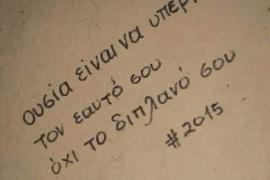 Ουσία είναι να υπερ
τον εαυτό σου
όχι το διπλανό σου
#2015